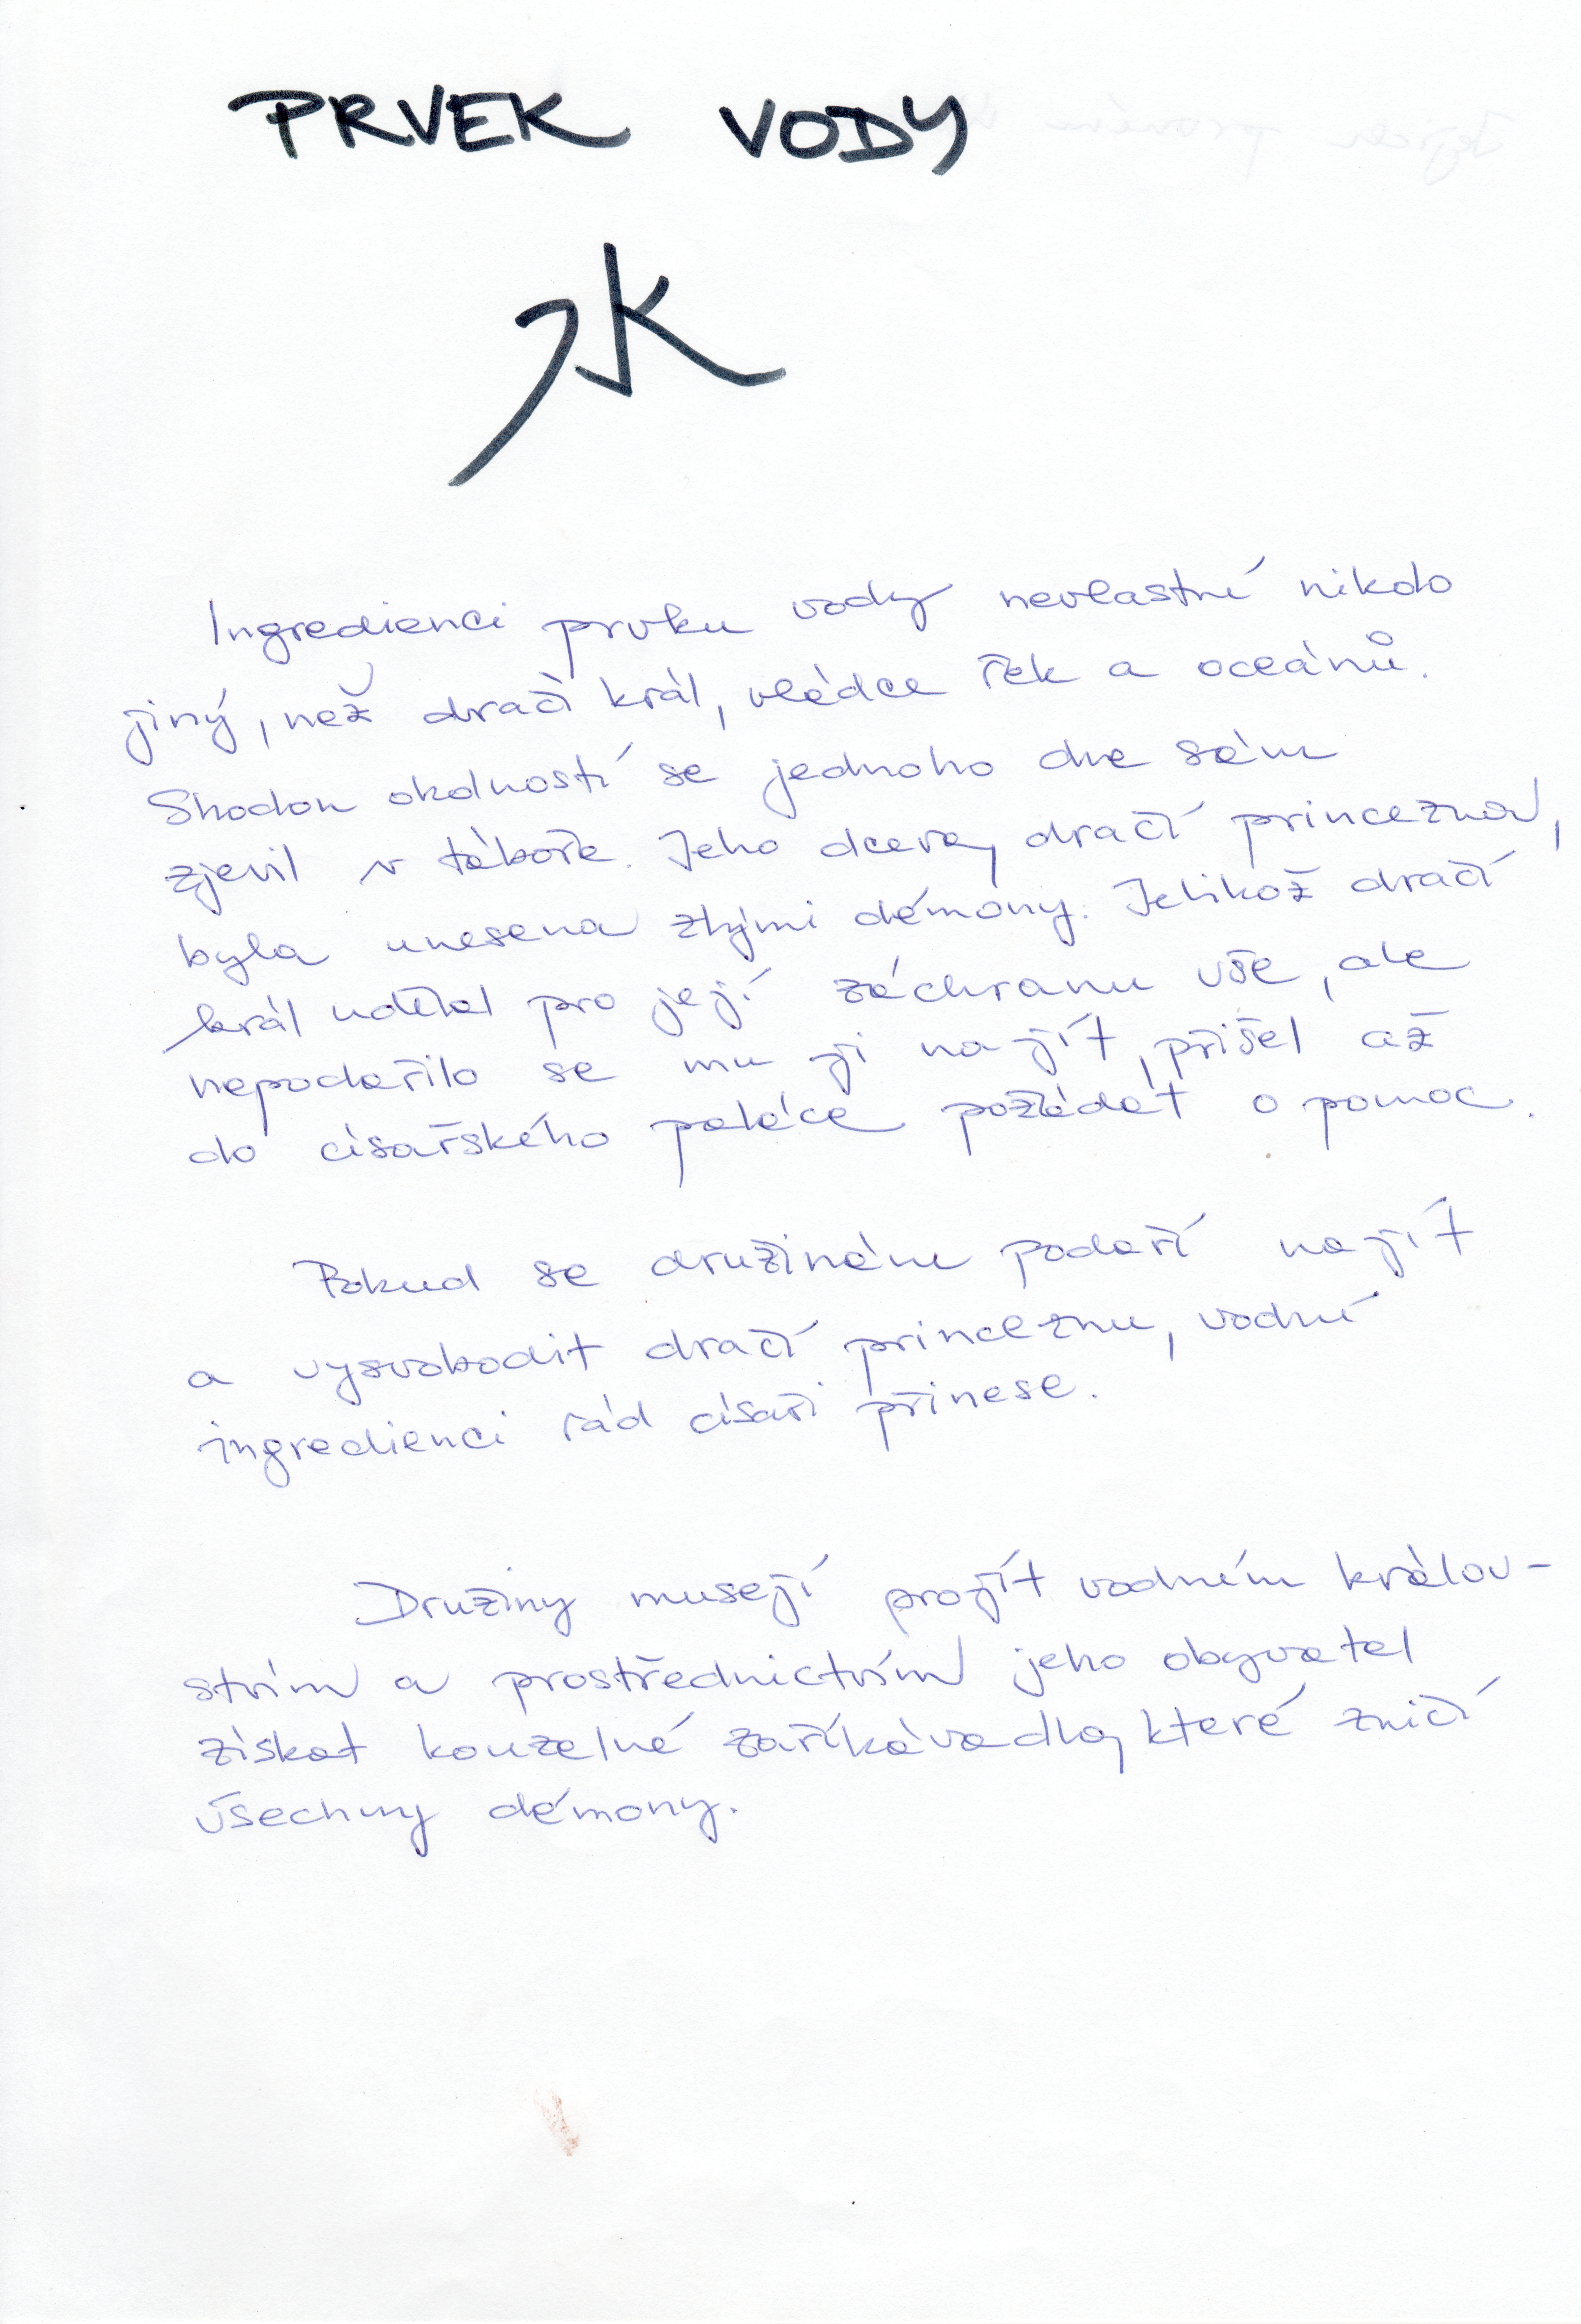 PRVEK VODY
水
Ingredienci prvku vody nevlastní nikdo
jiný, než dračí král, vládce řek a oceánů.
Shodou okolností se jednoho dne sám
zjevil v táboře. Jeho dcera, dračí princezna,
byla unesena zlými démony. Jelikož dračí
král udělal pro její záchranu vše, ale
nepodařilo se mu ji najít, přišel až
do císařského paláce požádat o pomoc.
Pokud se družinám podaří najít
a vysvobodit dračí princeznu, vodní
ingredienci rád císaři přinese.
Družiny musejí projít vodním králov-
stvím a prostřednictvím jeho obyvatel
získat kouzelné zaříkávadlo, které zničí
všechny démony.